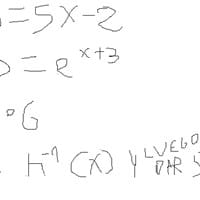 =5x-2
=e^x+3
∘G
h⁻¹(x) y LUEGO DAR